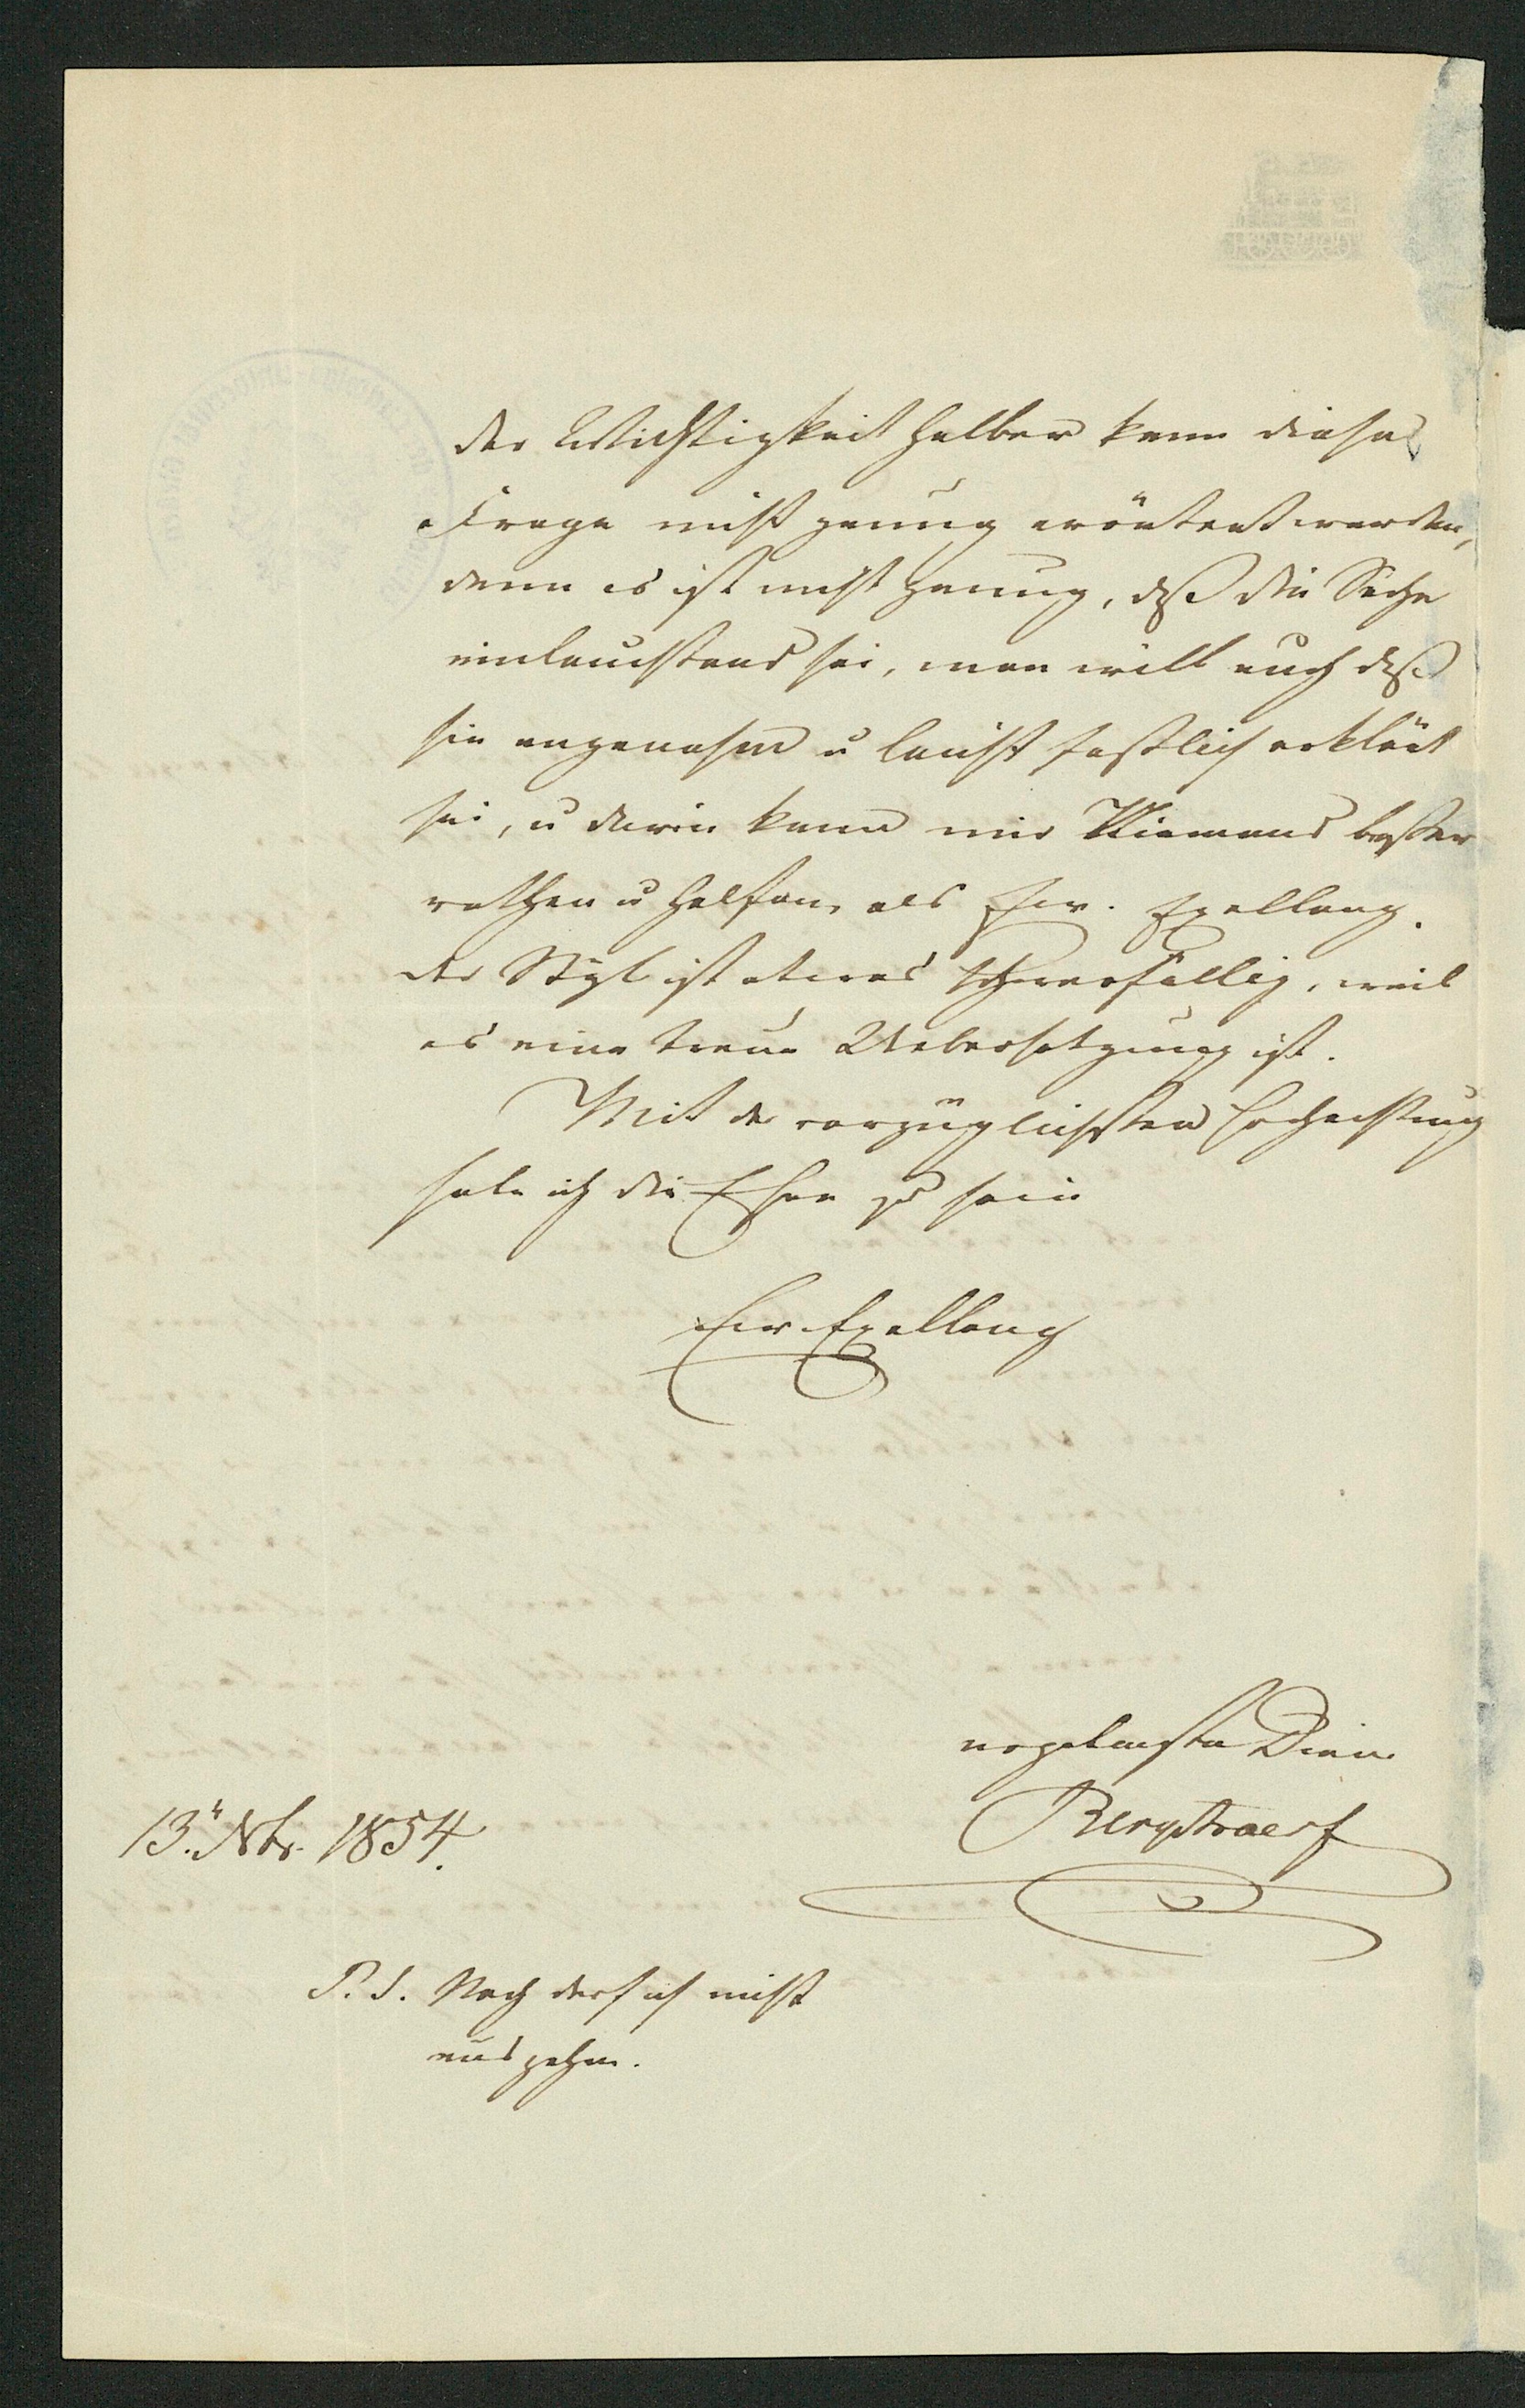 der Wichtigkeit halber kann diese
Frage nicht genug erörtert werden,
denn es ist nicht genug, daß die Sache
einleuchtend sei, man will auch daß
sie angenehm u leicht faßlich erklärt
sei, u darin kann mir Niemand beßer
rathen u helfen, als Euer. Exellenz.
der Styl ist etwas schwerfällig, weil
es eine treue Uebersetzung ist.
Mit der vorzüglichsten Hochachtung
habe ich die Ehre zu sein
Euer Exellenz
ergebenster Diener
Bergstraesser
13. Nbr. 1854.
P. S. Noch darf ich nicht
ausgehen.